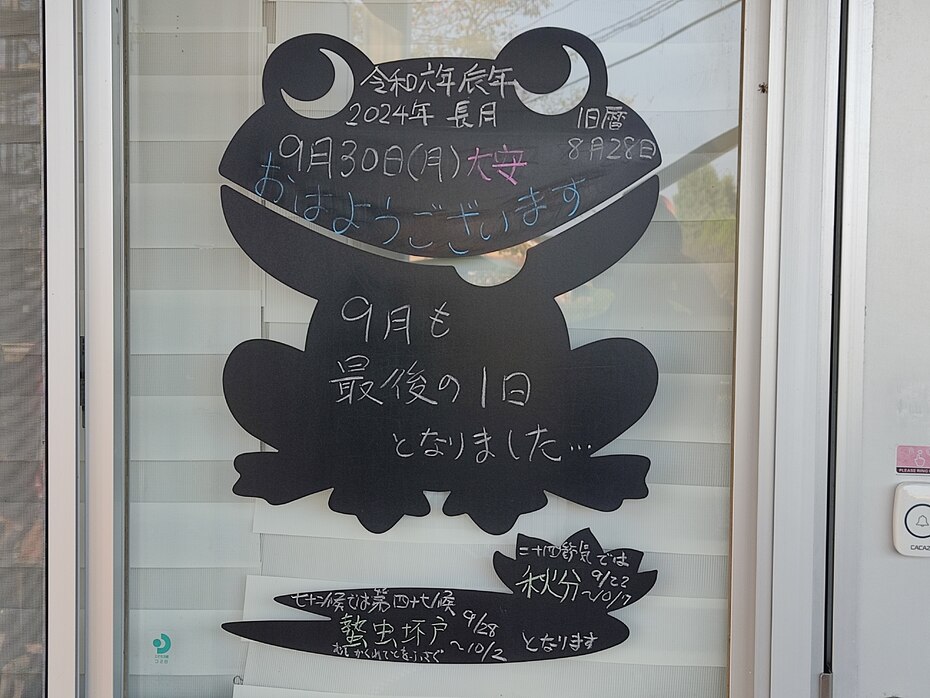 令和六年辰年
2024年 長月
旧暦
8月28日
9月30日(月)大安
おはようございます
9月も
最後の1日
となりました…
二十四節気では
秋分 9/22
~10/7
七十二候では第四十七候
蟄虫坏戸 9/28
~10/2
むしかくれてとをふさぐ
となります
PLEASE RING